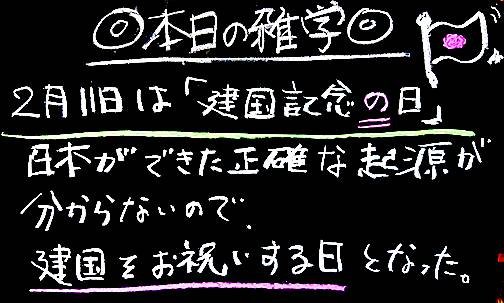 ◎本日の雑学◎
2月11日は「建国記念の日」
日本ができた正確な起源が
分からないので、
建国をお祝いする日となった。